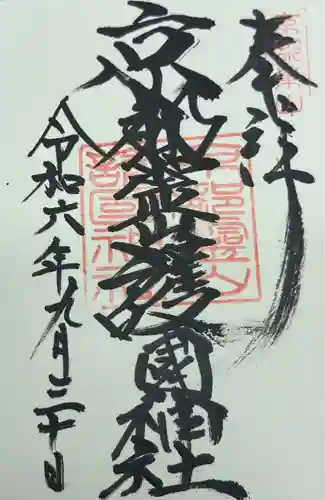 奉拝
京都霊山護國神社
令和六年九月三十日